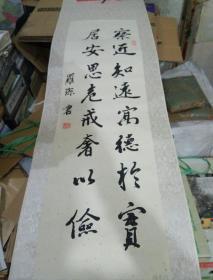 察近知遠寓德於實
居安思危戒奢以儉
羅琼書